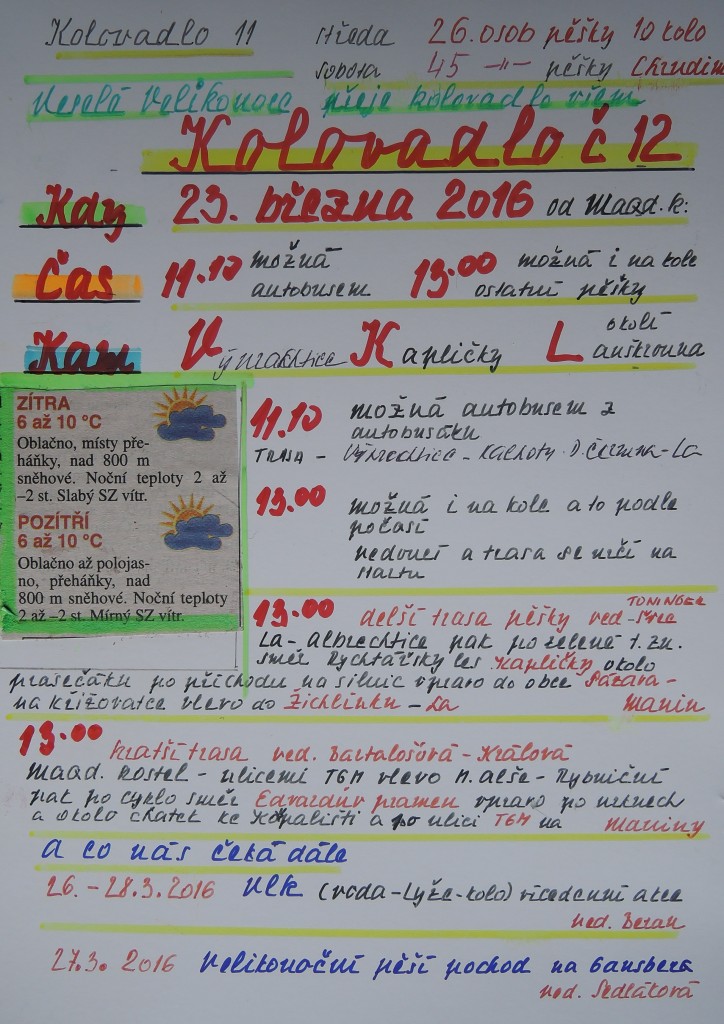 Kolovadlo 11 středa 26. osob pěšky 10 kolo
sobota 45 -"- pěšky Chrudim
Veselé Velikonoce přeje kolovadlo všem
Kolovadlo č 12
Kdy 23. března 2016 od Maqd. k:
Čas 11.10 možná autobusem 13.00 možná i na kole ostatní pěšky
Kam Výprachtice Kapličky Lanškrouna okolí
ZÍTRA
6 až 10 °C
Oblačno, místy pře-
háňky, nad 800 m
sněhové. Noční teploty 2 až
–2 st. Slabý SZ vítr.
POZÍTŘÍ
6 až 10 °C
Oblačno až polojas-
no, přeháňky, nad
800 m sněhové. Noční teploty
2 až –2 st. Mírný SZ vítr.
11.10 možná autobusem z
autobusáku
TRASA - Výprachtice - Kalhoty - D. Čermna - La
13.00 možná i na kole a to podle
počasí
vedoucí a trasa se určí na
startu
13.00 delší trasa pěšky ved - TONINGER
La - Albrechtice pak po zelené t. zn.
směr Rychtářsky les Kapličky okolo
prasečáku po příchodu na silnic vpravo do obce Sázava -
na křižovatce vlevo do Žichlínku - La Manin
13.00 kratší trasa ved. Bartalošová - Králová
Maqd. kostel - ulicemi TGM vlevo M. Alše - Rybniční
pak po cyklo směr Edvardův pramen vpravo po
a okolo chatek ke Kopališti a po ulici TGM na Maniny
a co nás čeká dále
26. - 28.3. 2016 VLK (voda - Lyže - kolo) vícedenní akce
ved. Beran
27.3. 2016 Velikonoční pěší pochod na Gansberg
ved. Sedláková